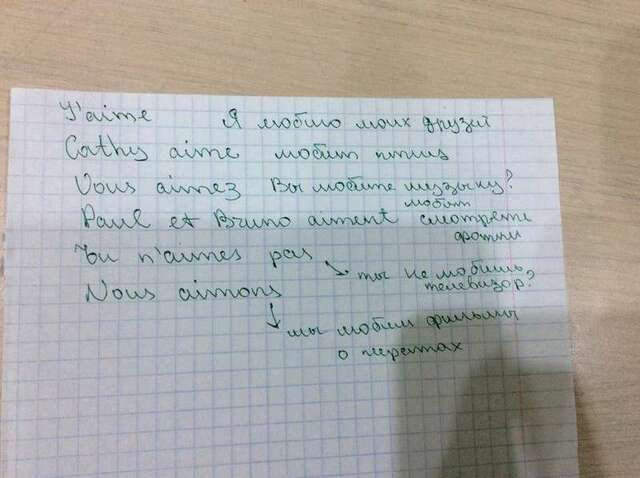 J'aime Я люблю моих друзей
Cathy aime любит птиц
Vous aimez Вы любите музыку?
любят
Paul et Bruno aiment смотреть
фотки
Tu n'aimes pas → ты не любишь
телевизор?
Nous aimons
↓ мы любим фильмы
о пиратах